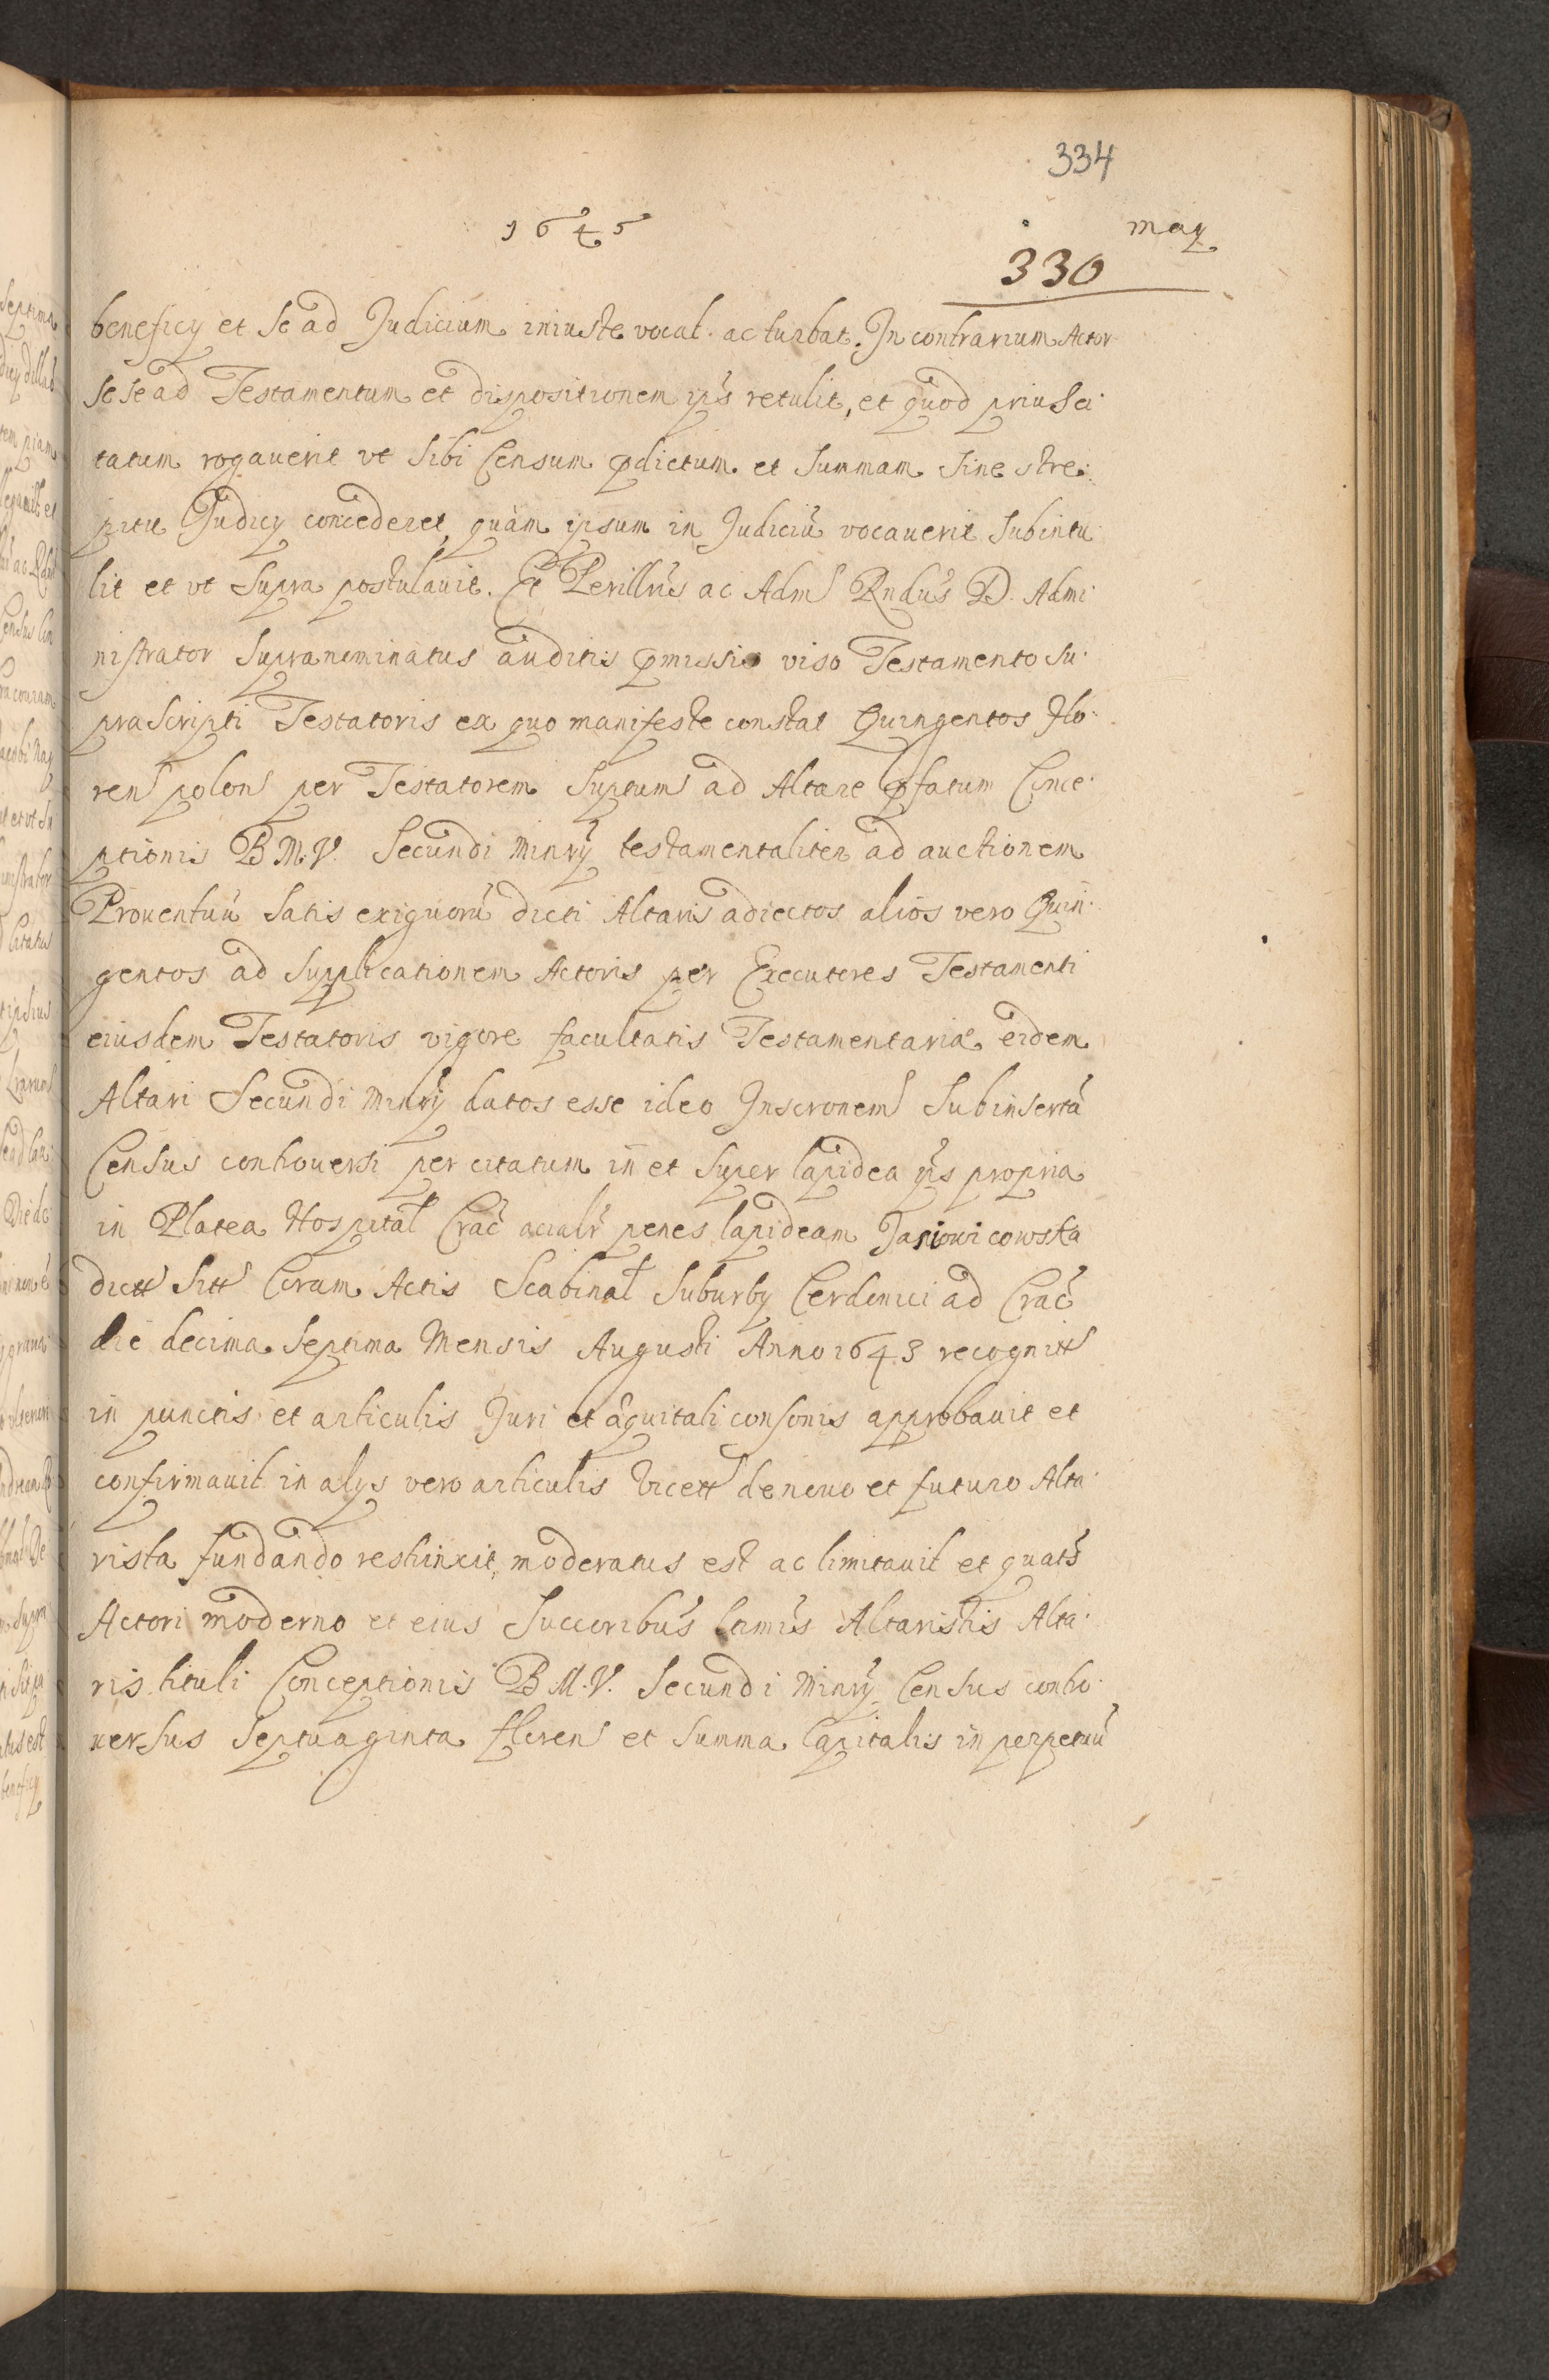 334
1645
May
330
beneficy et Se ad Judicium iniuste vocat. ac turbat. In contrarium Actor
Se Se ad Testamentum et dispositionem ips̃ retulit, et quod prius ci
tatum rogauerit vt Sibi Censum pdictum et Summam Sine stre:
pitu Judicy concederet, quàm ipsum in Judiciũ vocauerit Subintu
lit et vt Supra postulauit. Et Perillris ac Adm Rndus D. Admi
nistrator Supranominatus auditis pmissis viso Testamento Su
praScripti Testatoris ex quo manifeste constat Quingentos Flo
ren polon per Testatorem Suptum ad Altare pfatum Conce
ptionis B M. V. Secundi Minrÿ testamentaliter ad auctionem
Prouentuũ Satis exiguorũ dicti Altaris adiectos alios vero Quin
gentos ad Supplicationem Actoris per Executores Testamenti
eiusdem Testatoris vigore facultatis Testamentaria eidem
Altari Secundi Minrÿ datos esse ideo Inscronem Subinsertã
Census controuersi per citatum in et Super lapidea ips̃ propria
in Platea Hospital Crac̃ acialr̃ penes lapideam Jasiowicowska
dictt Sitt Coram Actis Scabinal Suburby Cerdonici ad Crac̃
die decima Septima Mensis Augusti Anno 1643 recognitt
in punctis et articulis Juri et æquitati consonis approbauit et
confirmauit in alys vero articulis Vicett de nouo et futuro Alta
rista fundando restrinxit, moderatus est ac limitauit et quats̃
Actori moderno et eius Succoribus ltimis Altaristis Alta
ris tituli Conceptionis B M. V. Secundi Minrÿ Census contro
uersus Septuaginta floren et Summa Capitalis in perpetuũ